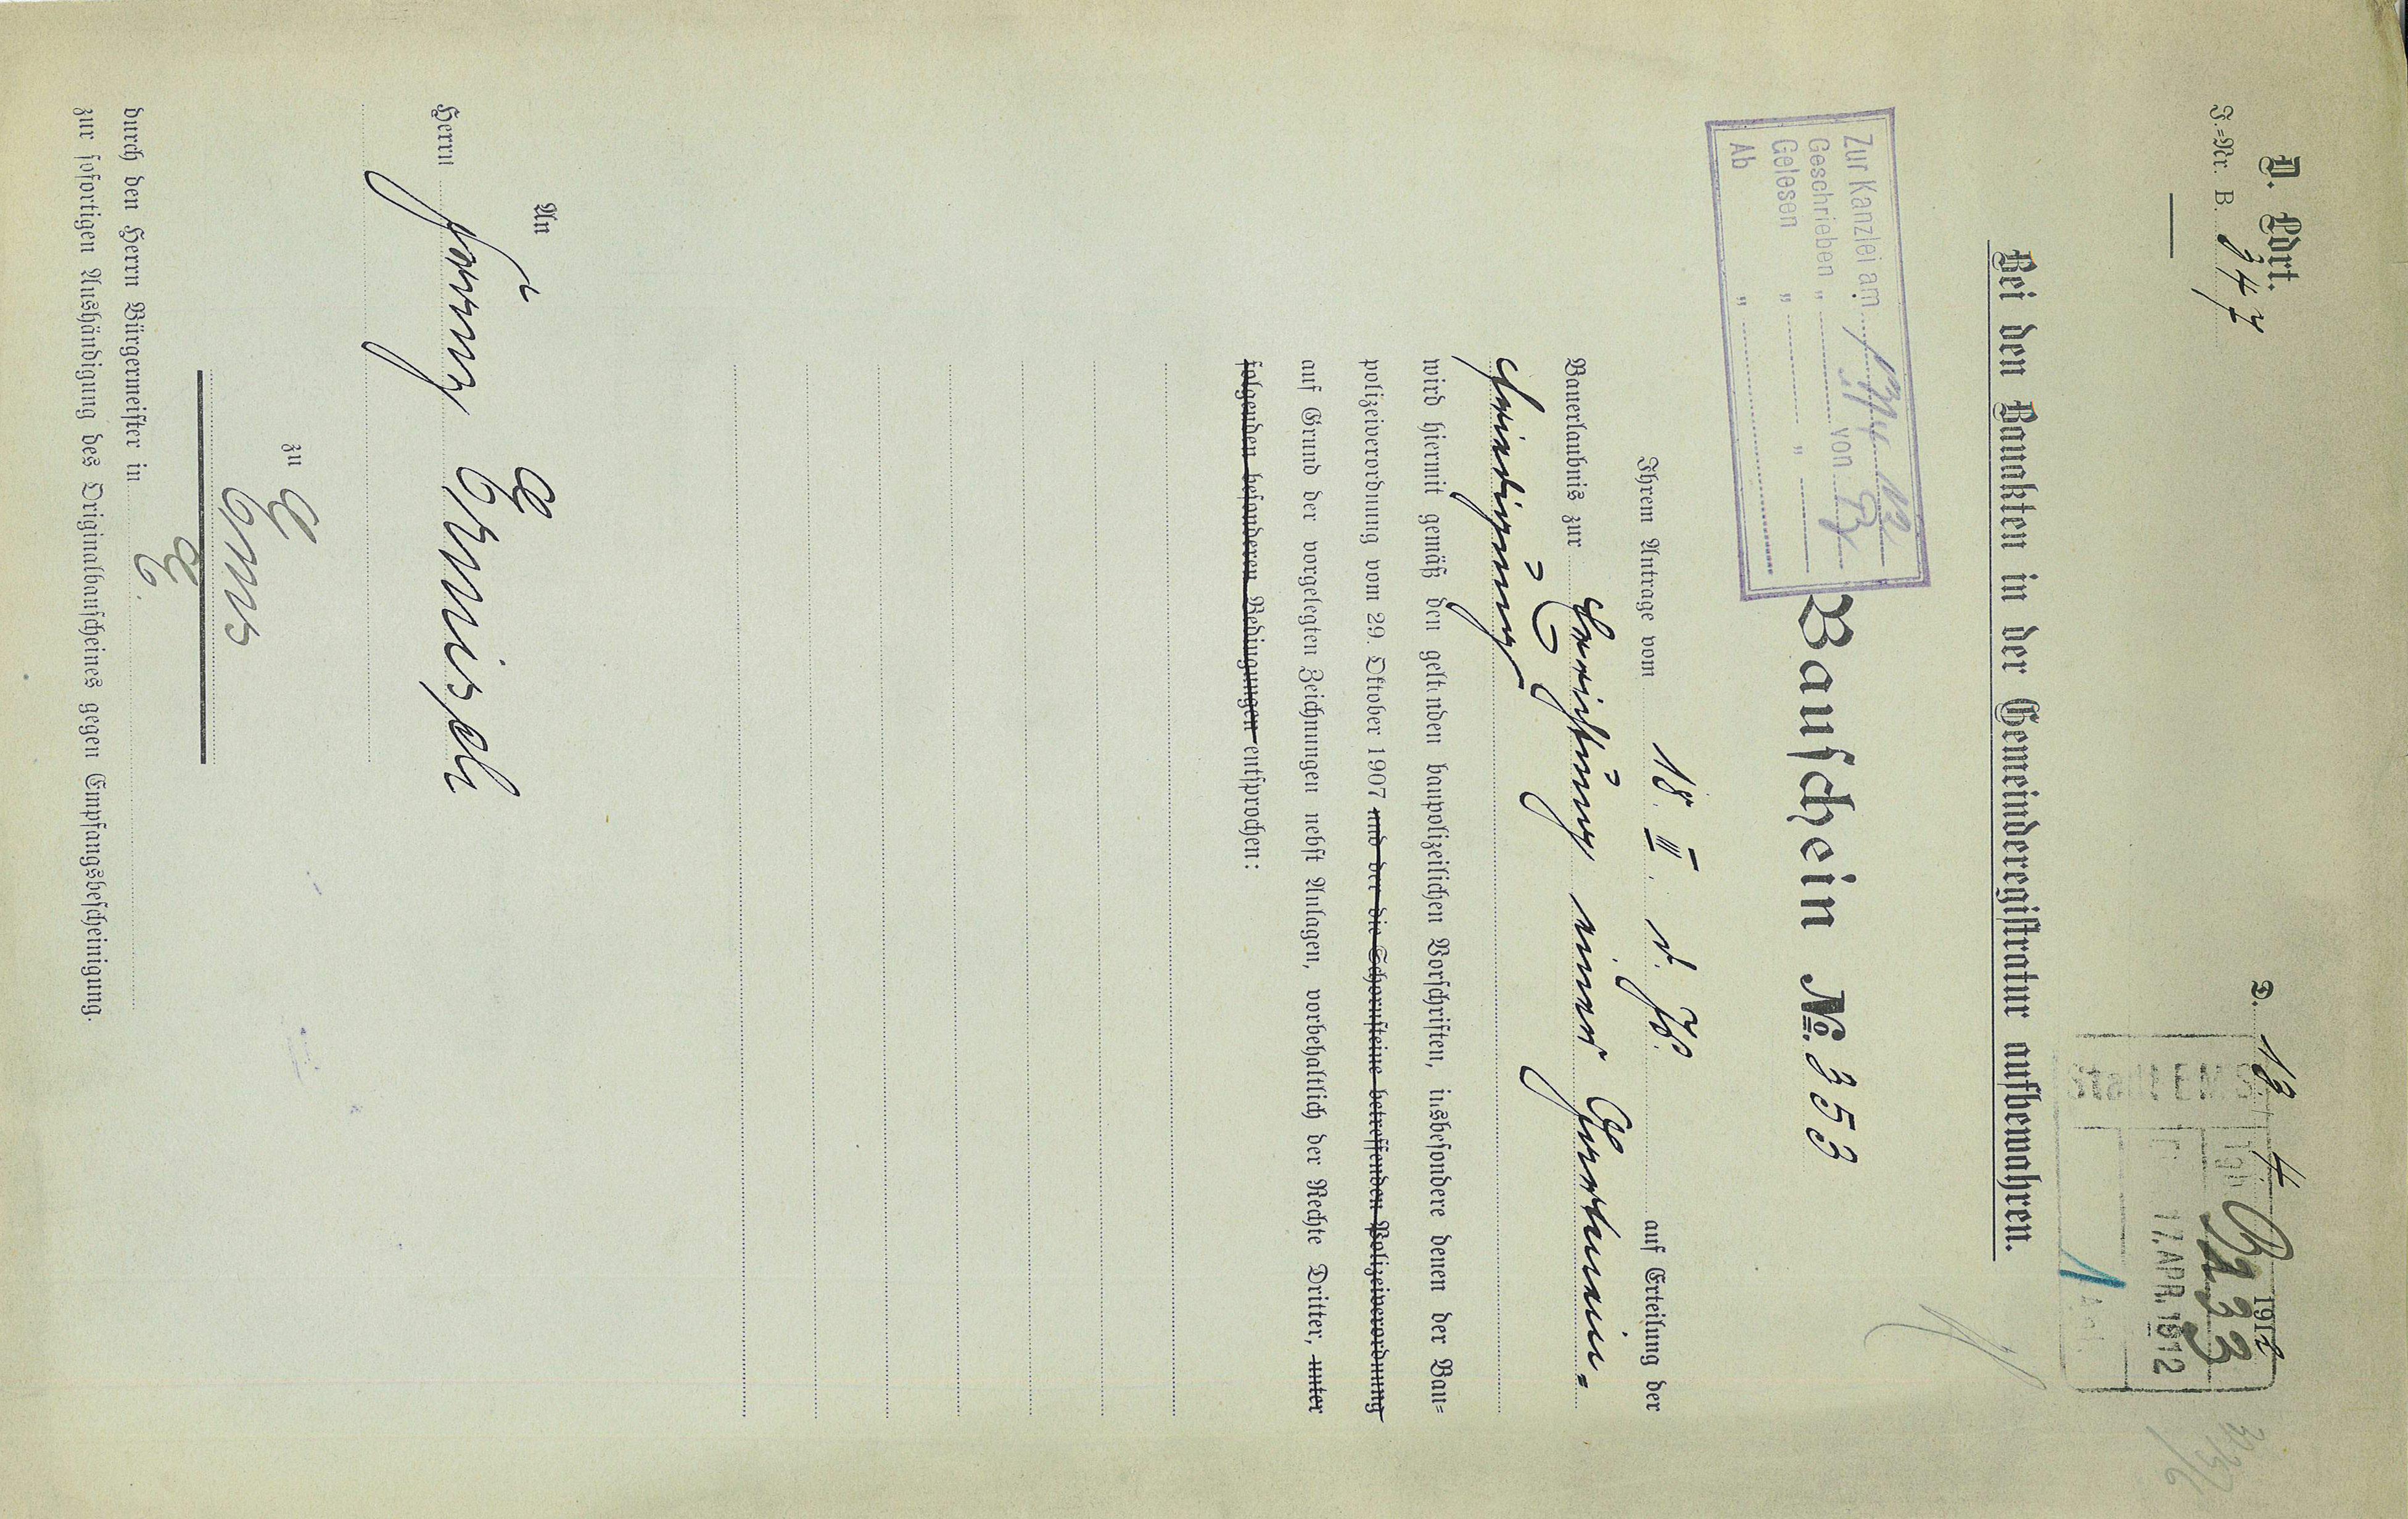 D. Ldrt.
J.=Nr. B. 347
D. 13 4 1912
Stadt EMS
17. APR. 1912
B 2233
1
Bei den Bauakten in der Gemeinderegistratur aufbewahren.
Zur Kanzlei am
Geschrieben " von
Gelesen " "
Ab "
Bauschein No. 353
Ihrem Antrage vom 18. III. d. Js. auf Erteilung der
Bauerlaubnis zur Errichtung einer Garten-
einfriedigung
wird hiermit gemäß den geltenden baupolizeilichen Vorschriften, insbesondere denen der Bau=
polizeiverordnung vom 29. Oktober 1907 und der die Schornsteine betreffenden Polizeiverordnung
auf Grund der vorgelegten Zeichnungen nebst Anlagen, vorbehaltlich der Rechte Dritter, unter
folgenden besonderen Bedingungen entsprochen:
An
Herrn
zu Ems
durch den Herrn Bürgermeister in E.
zur sofortigen Aushändigung des Originalbauscheines gegen Empfangsbescheinigung.